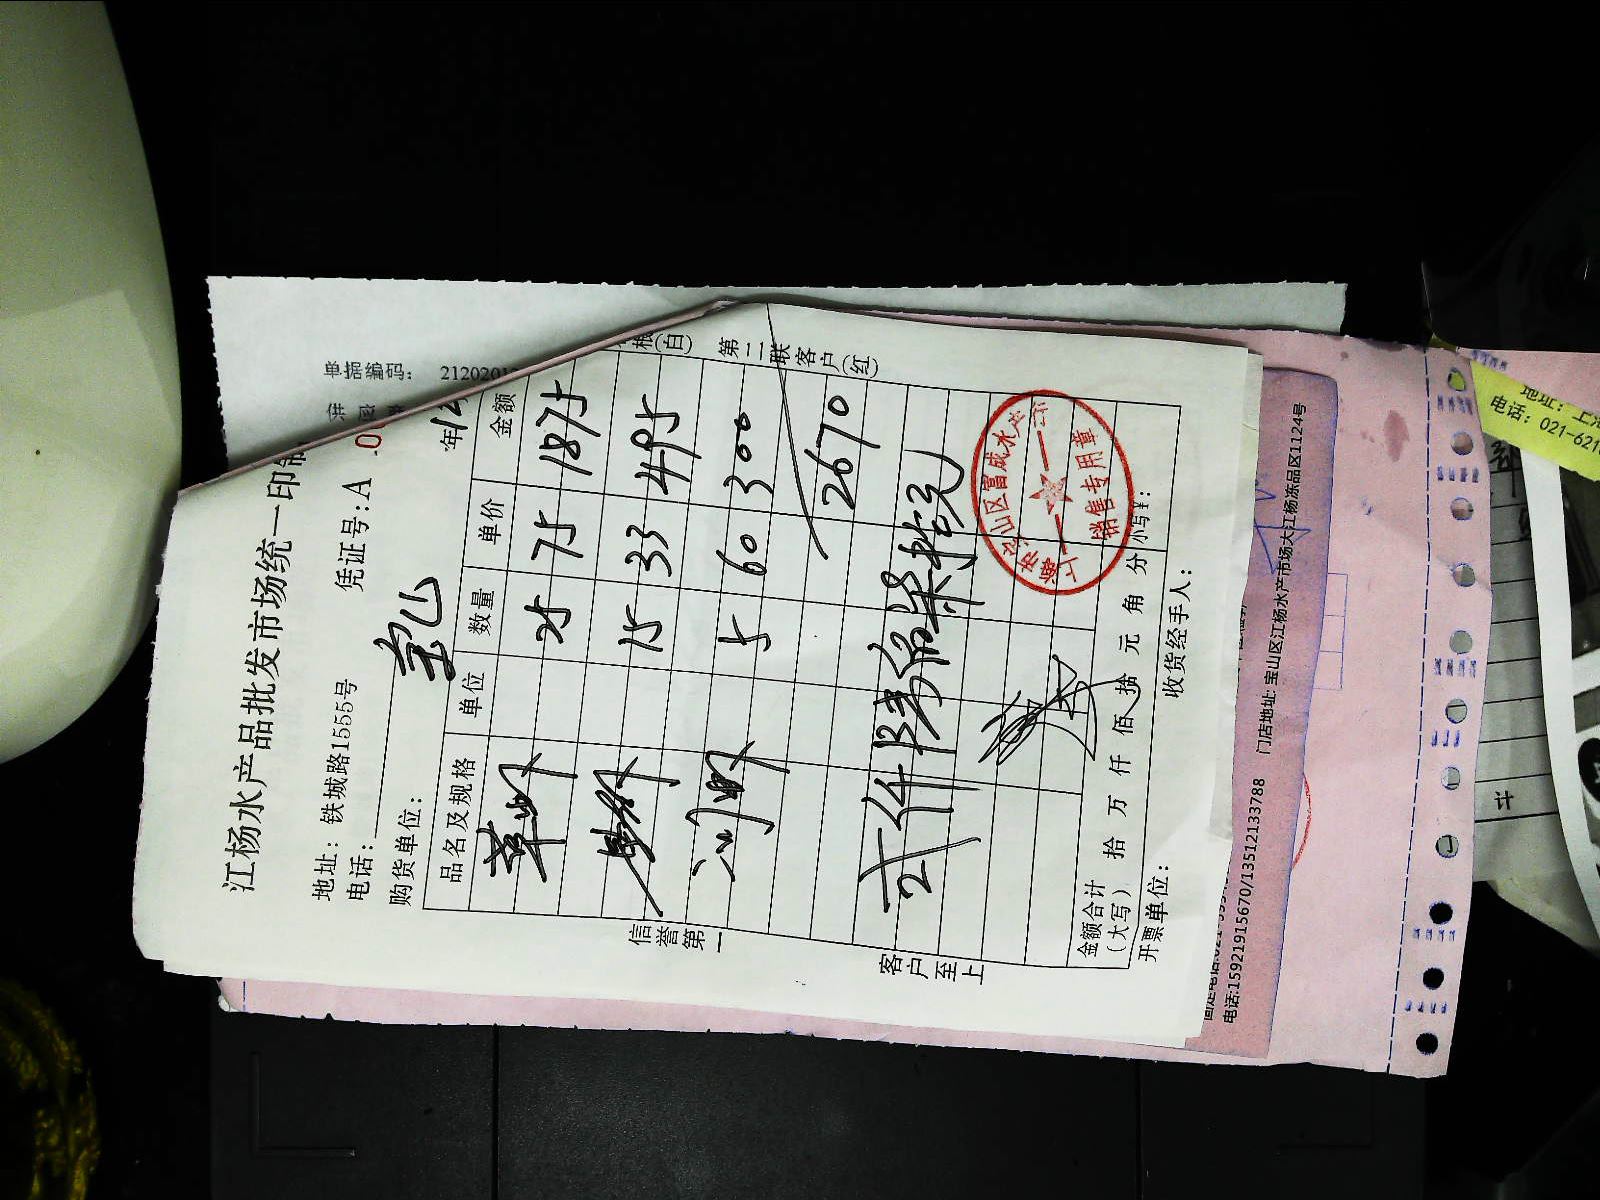 江杨水产品批发市场统一印制
地址： 铁城路1555号
凭证号：A
电话：
年12
购货单位：
品名及规格 单位 数量 单价 金额
草虾 25 75 1875
15 33 495
河虾 5 60 300
2670
贰仟陆佰柒拾元
金额合计
（大写） 拾 万 仟 佰 拾 元 角 分 小写￥：
开票单位：
收货经手人：
信誉第一
客户至上
根(白)
第二联客户(红)
山区富成水
销售专用章
单据编码： 2120201
电话:15921915670/13512133788 门店地址: 宝山区江杨水产市场大江杨冻品区1124号
地址：上海
电话：021-621